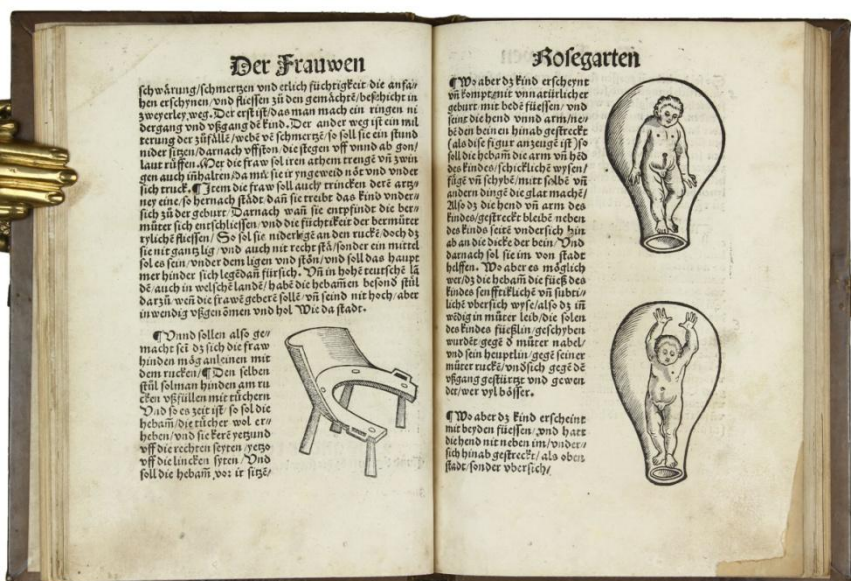 Der Frauwen
schwärung/schmertzen vnd erlich füchtigkeit die anfa//
hen erschynen/vnd fliessen zů den gemächtē/beschicht in
zweyerley weg. Der erst ist/das man mach ein ringen ni
dergang vnd vßgang dē kind. Der ander weg ist ein mil
terung der zůfälle/webē vn̄ schmertzē/so soll sie ein stund
nider sitzen/darnach vffston/die stegen vff vnnd ab gon/
laut rüffen. Aber die fraw sol iren athem trengē vn̄ zwin
gen auch inhalten/da mit sie ir yngeweid nöt vnd vnder
sich truck. ¶Item die fraw soll auch trincken derē artz//
ney eine/so hernach stådt/dan̄ sie treibt das kind vnder//
sich zů der geburt/Darnach wan̄ sie entpfindt die ber//
müter sich entschliessen/vnd die füchtikeit der bermüter
rylichē fliessen/So sol sie niderlegē an den rucke/doch dz
sie nit gantzlig/vnd auch nit recht stå/sonder ein mittel
sol es sein/vnder dem ligen vnd stön/vnd soll das haupt
mer hinder sich legē dan̄ fürsich. Vn̄ in hohē teutschē lā
dē/auch in welschē landē/habē die hebam̄en besond stül
darzů/wen̄ die frawē geberē sollē/vn̄ seind nit hoch/aber
inwendig vßgenōmen vnd hol Wie da stadt.
¶Vnnd sollen also ge//
macht sei dz sich die fraw
hinden mög anleinen mit
dem rucken/¶Den selben
stůl sol man hinden am ru
cken vßfüllen mit tüchern
Vnd so es zeit ist/so sol die
hebam̄/die tücher wol er//
heben/vnd sie kerē yetzund
vff die rechten seyten/yetzo
vff die lincken syten/Vnd
soll die hebam̄ vor ir sitzē/
Rosegarten
¶Wo aber dz kind erscheynt
vn̄ kompt mit vnnatürlicher
geburt mit bedē füessen/vnd
seint die hend vnnd arm/ne//
bē den beinen hinab gestreckt
(als dise figur anzeugē ist)so
soll die hebam̄ die arm vn̄ hēd
des kindes/schicklichē wysen/
fügē vn̄ schybē/mitt solbē vn̄
andern dingē die glat machē/
Also dz die hend vn̄ arm des
kindes/gestreckt bleibē neben
des kinds seitē vndersich hin
ab an die dicke der bein/Vnd
darnach sol sie im von stadt
helffen. Wo aber es möglich
wer/dz die hebam̄ die füeß des
kindes senfftiklichē vn̄ subti//
lichē vbersich wyse/also dz in
wēdig in müter leib/die solen
des kindes füeßlin/geschyben
wurdēt gegē d müter nabel/
vnd sein heuptlin/gegē seiner
müter ruckē/vnd sich gegē dē
vßgang gestürtzt vnd gewen
det/wer vyl bösser.
¶Wo aber dz kind erscheint
mit beyden füessen/vnd hatt
die hend nit neben im/vnder//
sich hinab gestreckt/als oben
stadt/sonder vbersich/